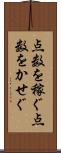 点数を稼ぐ点
数をかせぐ